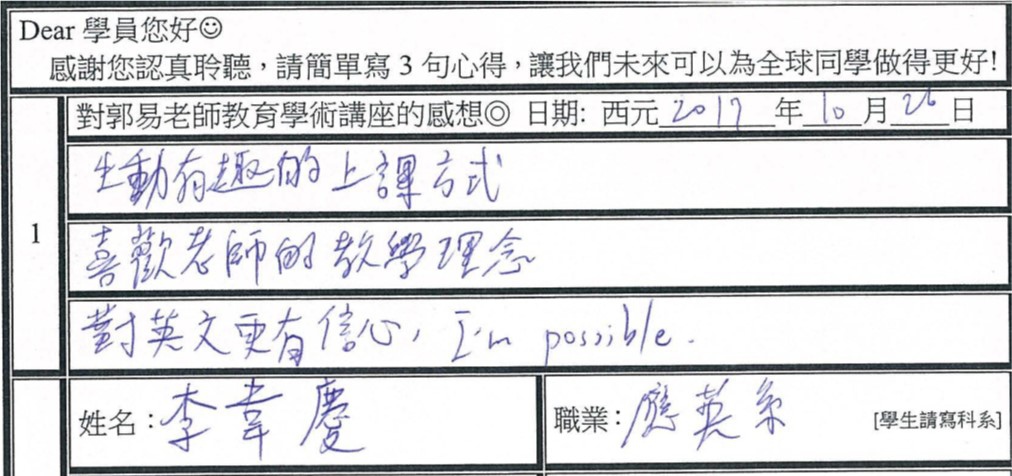 Dear 學員您好☺
感謝您認真聆聽，請簡單寫 3 句心得，讓我們未來可以為全球同學做得更好!
對郭易老師教育學術講座的感想◎ 日期: 西元 2017 年 10 月 26 日
1
生動有趣的上課方式
喜歡老師的教學理念
對英文更有信心, I'm possible.
姓名：李韋慶 職業：應英系 [學生請寫科系]